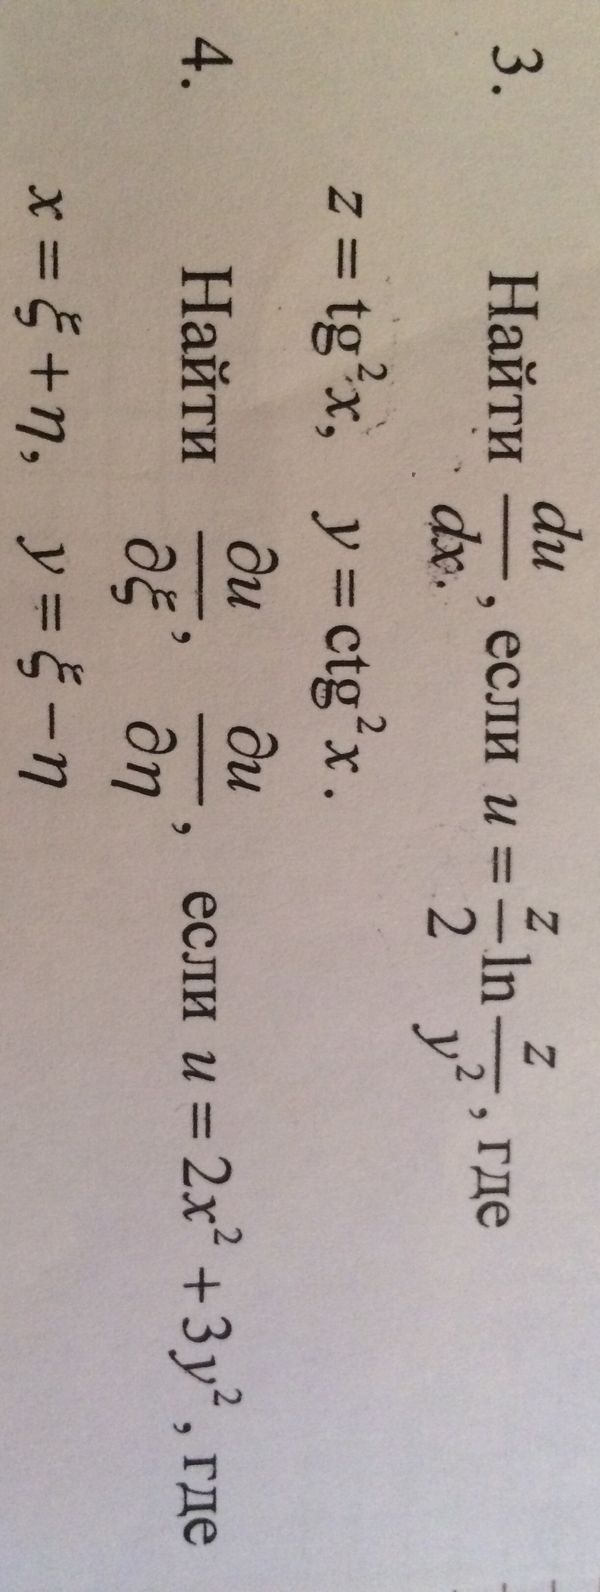 3. Найти du/dx, если u = z/2 ln z/y², где
z = tg²x, y = ctg²x.
4. Найти ∂u/∂ξ, ∂u/∂η, если u = 2x² + 3y², где
x = ξ + η, y = ξ − η